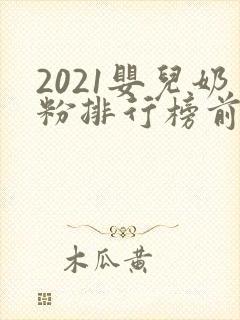 2021嬰兒奶
粉排行榜前
木瓜黄